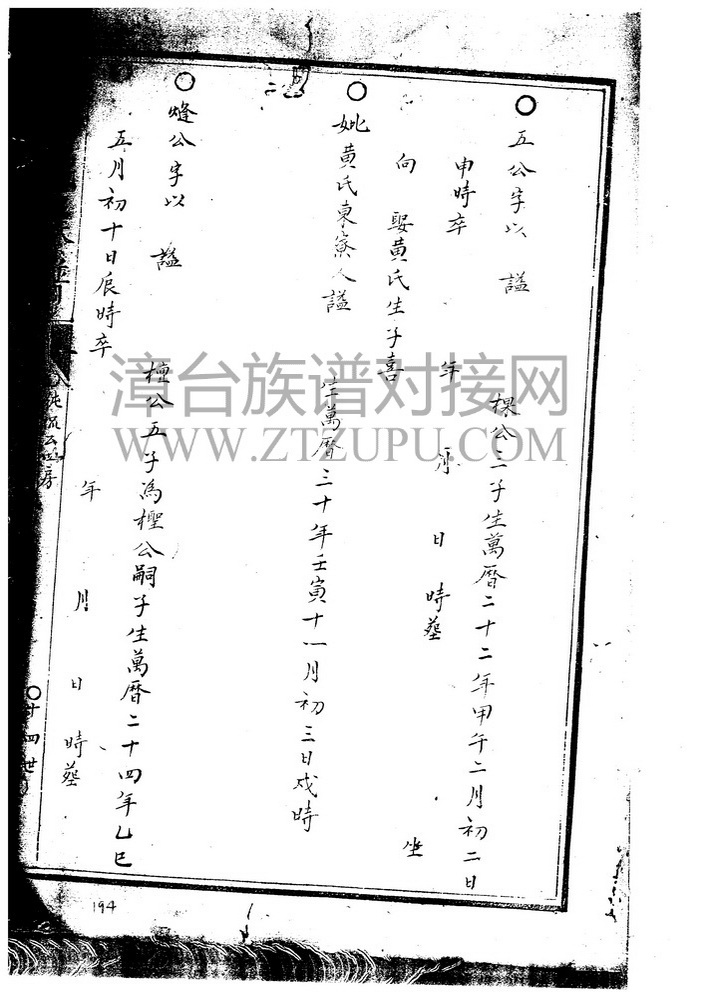 五公字以 諡 棵公二子生萬曆二十二年甲午二月初二日
申時卒 年 月 日 時塟 坐
向 娶黃氏生子喜
妣黃氏東寮人諡 生萬曆三十年壬寅十一月初三日戌時
熢公字以 諡 檀公五子為樫公嗣子生萬曆二十四年乙巳
五月初十日辰時卒 年 月 日 時塟
十四世
194
漳台族谱对接网
WWW.ZTZUPU.COM